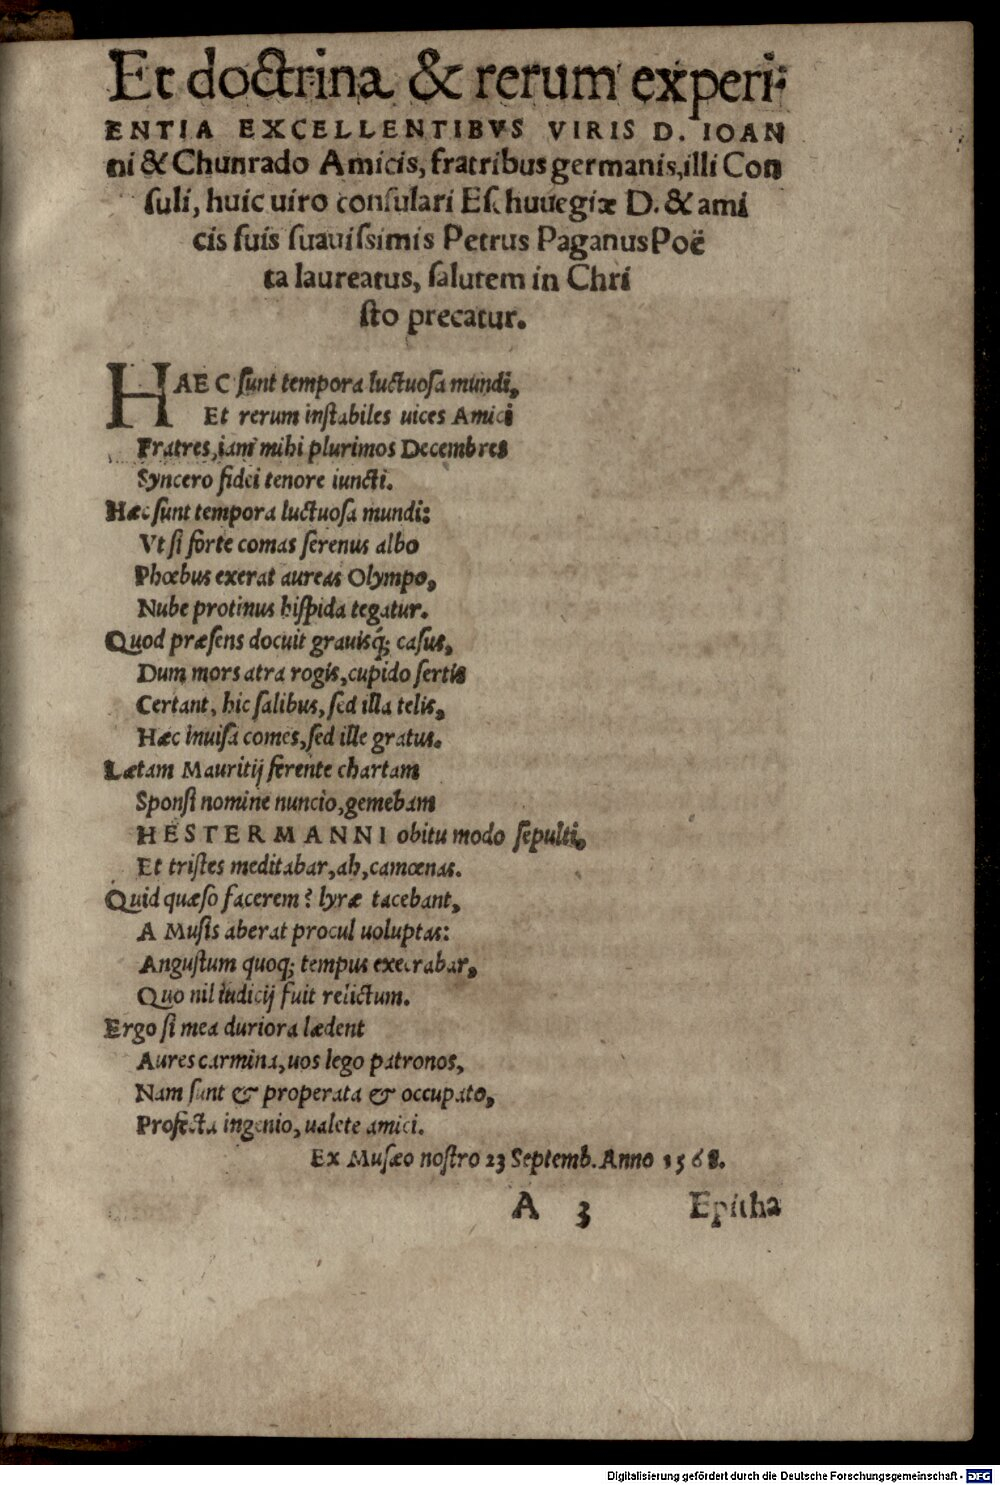 Et doctrina & rerum experi-
ENTIA EXCELLENTIBVS VIRIS D. IOAN
ni & Chunrado Amicis, fratribus germanis, illi Con
ſuli, huic uiro conſulari Eſchuuegiæ D. & ami
cis ſuis ſuauiſsimis Petrus Paganus Poë
ta laureatus, ſalutem in Chri
ſto precatur.
HAEC ſunt tempora luctuoſa mundi,
Et rerum inſtabiles uices Amici
Fratres, iam mihi plurimos Decembres
Syncero fidei tenore iuncti.
Hæc ſunt tempora luctuoſa mundi:
Vt ſi forte comas ſerenus albo
Phœbus exerat aureas Olympo,
Nube protinus hiſpida tegatur.
Quod præſens docuit grauisq́; caſus,
Dum mors atra rogis, cupido ſertis
Certant, hic ſalibus, ſed illa telis,
Hæc inuiſa comes, ſed ille gratus.
Lætam Mauritij ferente chartam
Sponſi nomine nuncio, gemebam
HESTERMANNI obitu modo ſepulti,
Et triſtes meditabar, ah, camœnas.
Quid quæſo facerem? lyræ tacebant,
A Muſis aberat procul uoluptas:
Anguſtum quoq; tempus execrabar,
Quo nil iudicij fuit relictum.
Ergo ſi mea duriora lædent
Aures carmina, uos lego patronos,
Nam ſunt & properata & occupato,
Profecta ingenio, ualete amici.
Ex Muſæo noſtro 23 Septemb. Anno 1568.
A 3 Epitha
Digitalisierung gefördert durch die Deutsche Forschungsgemeinschaft - DFG